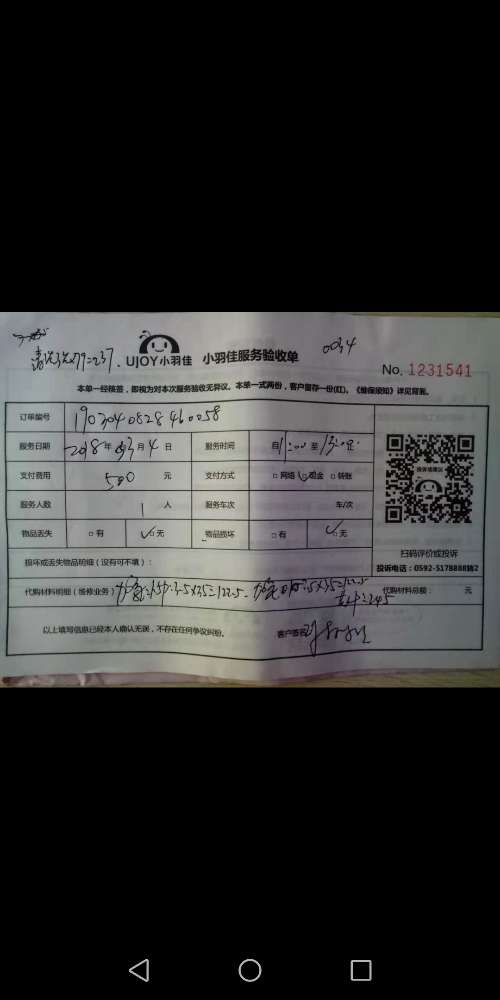 UJOY小羽佳 小羽佳服务验收单 0034
No. 1231541
本单一经核签，即视为对本次服务验收无异议。本单一式两份，客户留存一份(红)。《维保须知》详见背面。
订单编号 1903040828460058
服务日期 2018年03月4日 服务时间 自11:00至13:00止
支付费用 500元 支付方式 □网络 □现金 □转账
投诉或建议
服务人数 1人 服务车次 车/次
物品丢失 □有 □无 物品损坏 □有 □无
扫码评价或投诉
损坏或丢失物品明细（没有可不填）：
投诉电话：0592-5178888转2
代购材料明细（维修业务） 3.5X35=122.5 代购材料总额： 元
以上填写信息已经本人确认无误，不存在任何争议纠纷。 客户签名